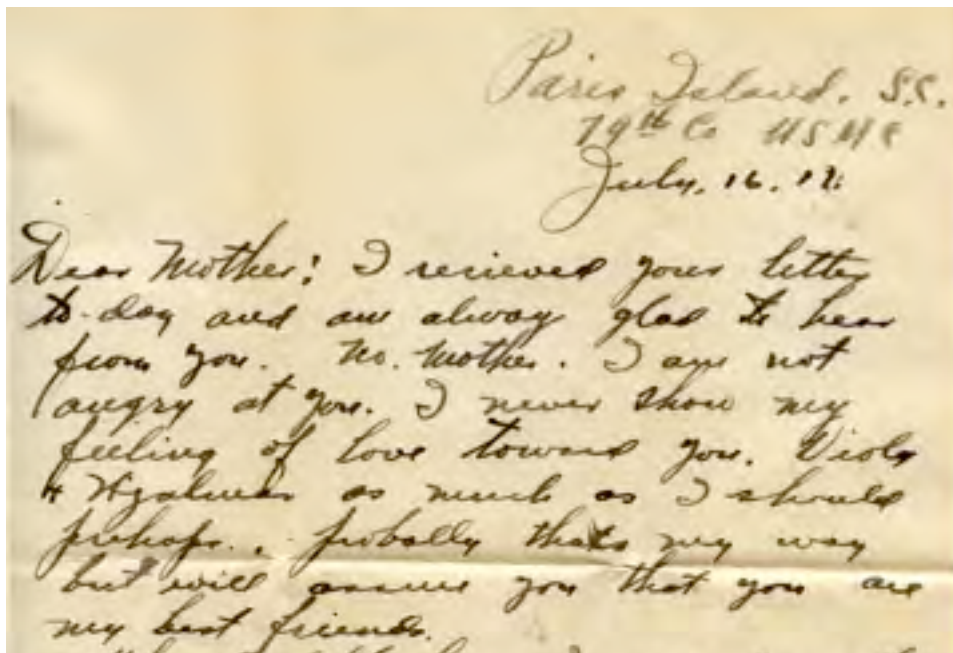 Paris Island. S.C.
79th Co USMC
July. 16. 18.
Dear Mother! I recieved your letter
to-day and am alway glad to hear
from you. No. Mother. I am not
angry at you. I never show my
feeling of love toward you. Viola
+ Hjalmer as much as I should
prehaps.. probally thats my way
but will assure you that you are
my best friends.